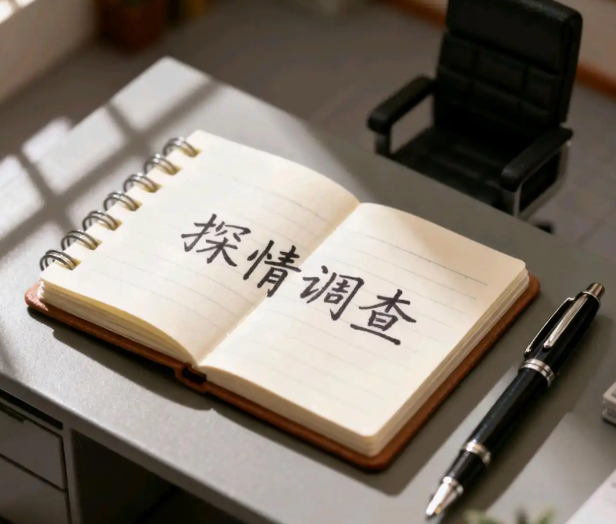 探情调查